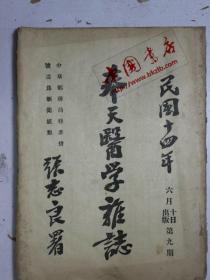 民國十四年
六月十日出版第九期
奉天醫學雜誌
張志良署
中華郵務局特准掛
號認為新聞紙類
國書店
www.bkzlb.com